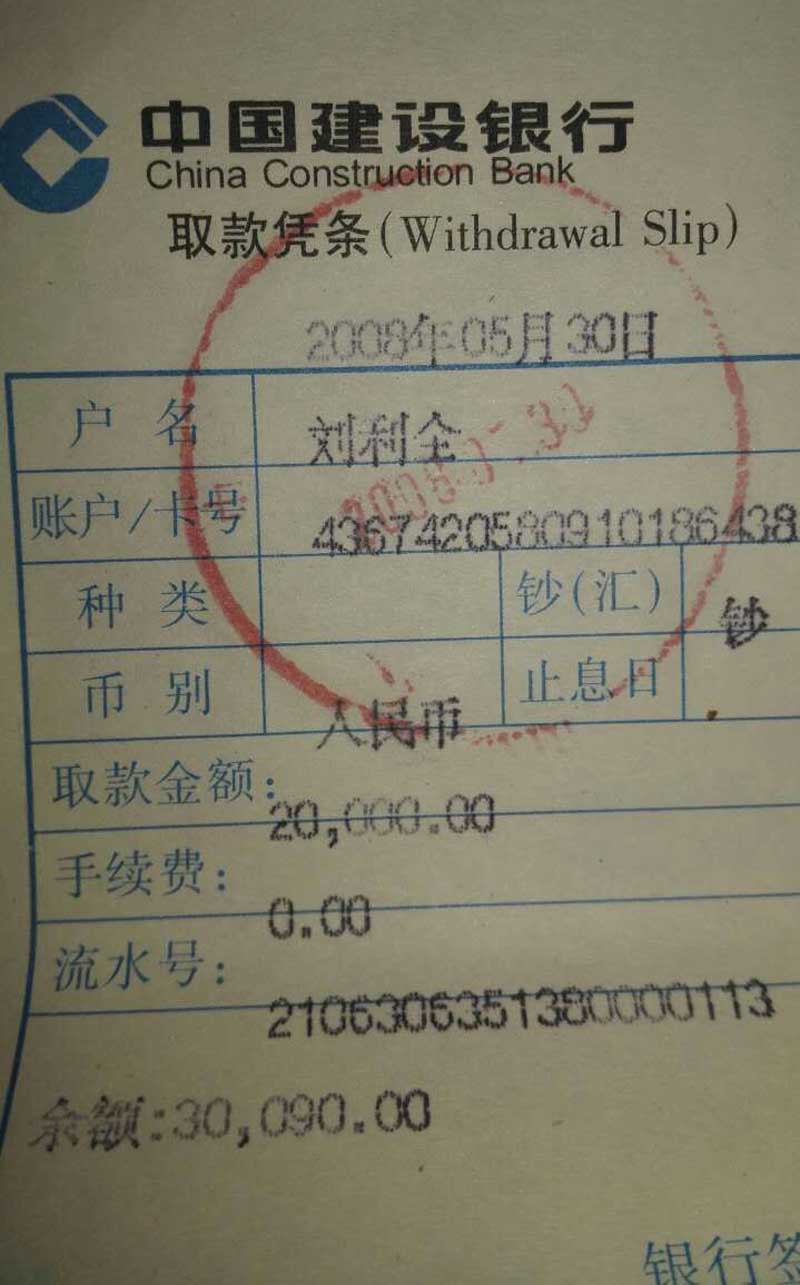 中国建设银行
China Construction Bank
取款凭条(Withdrawal Slip)
2008年05月30日
户 名 刘利全
账户/卡号 4367420580910186438
种 类 钞(汇) 钞
币 别 人民币 止息日
取款金额: 20,000.00
手续费: 0.00
流水号: 2106306351380000113
余额:30,090.00
银行签